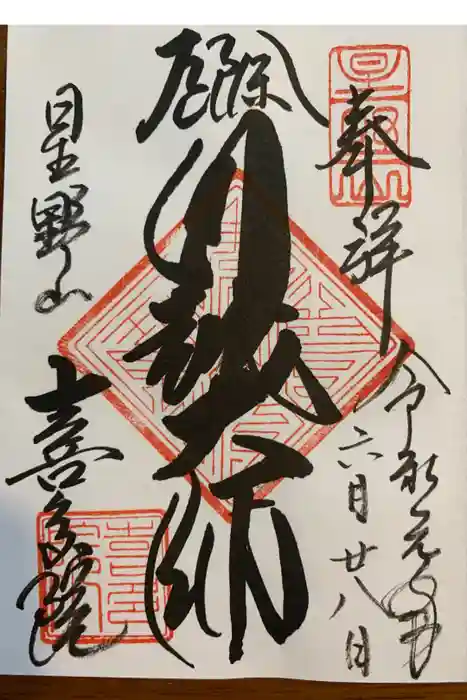 奉拝
令和元年
六月廿八日
厄除
川越大師
星野山
喜多院